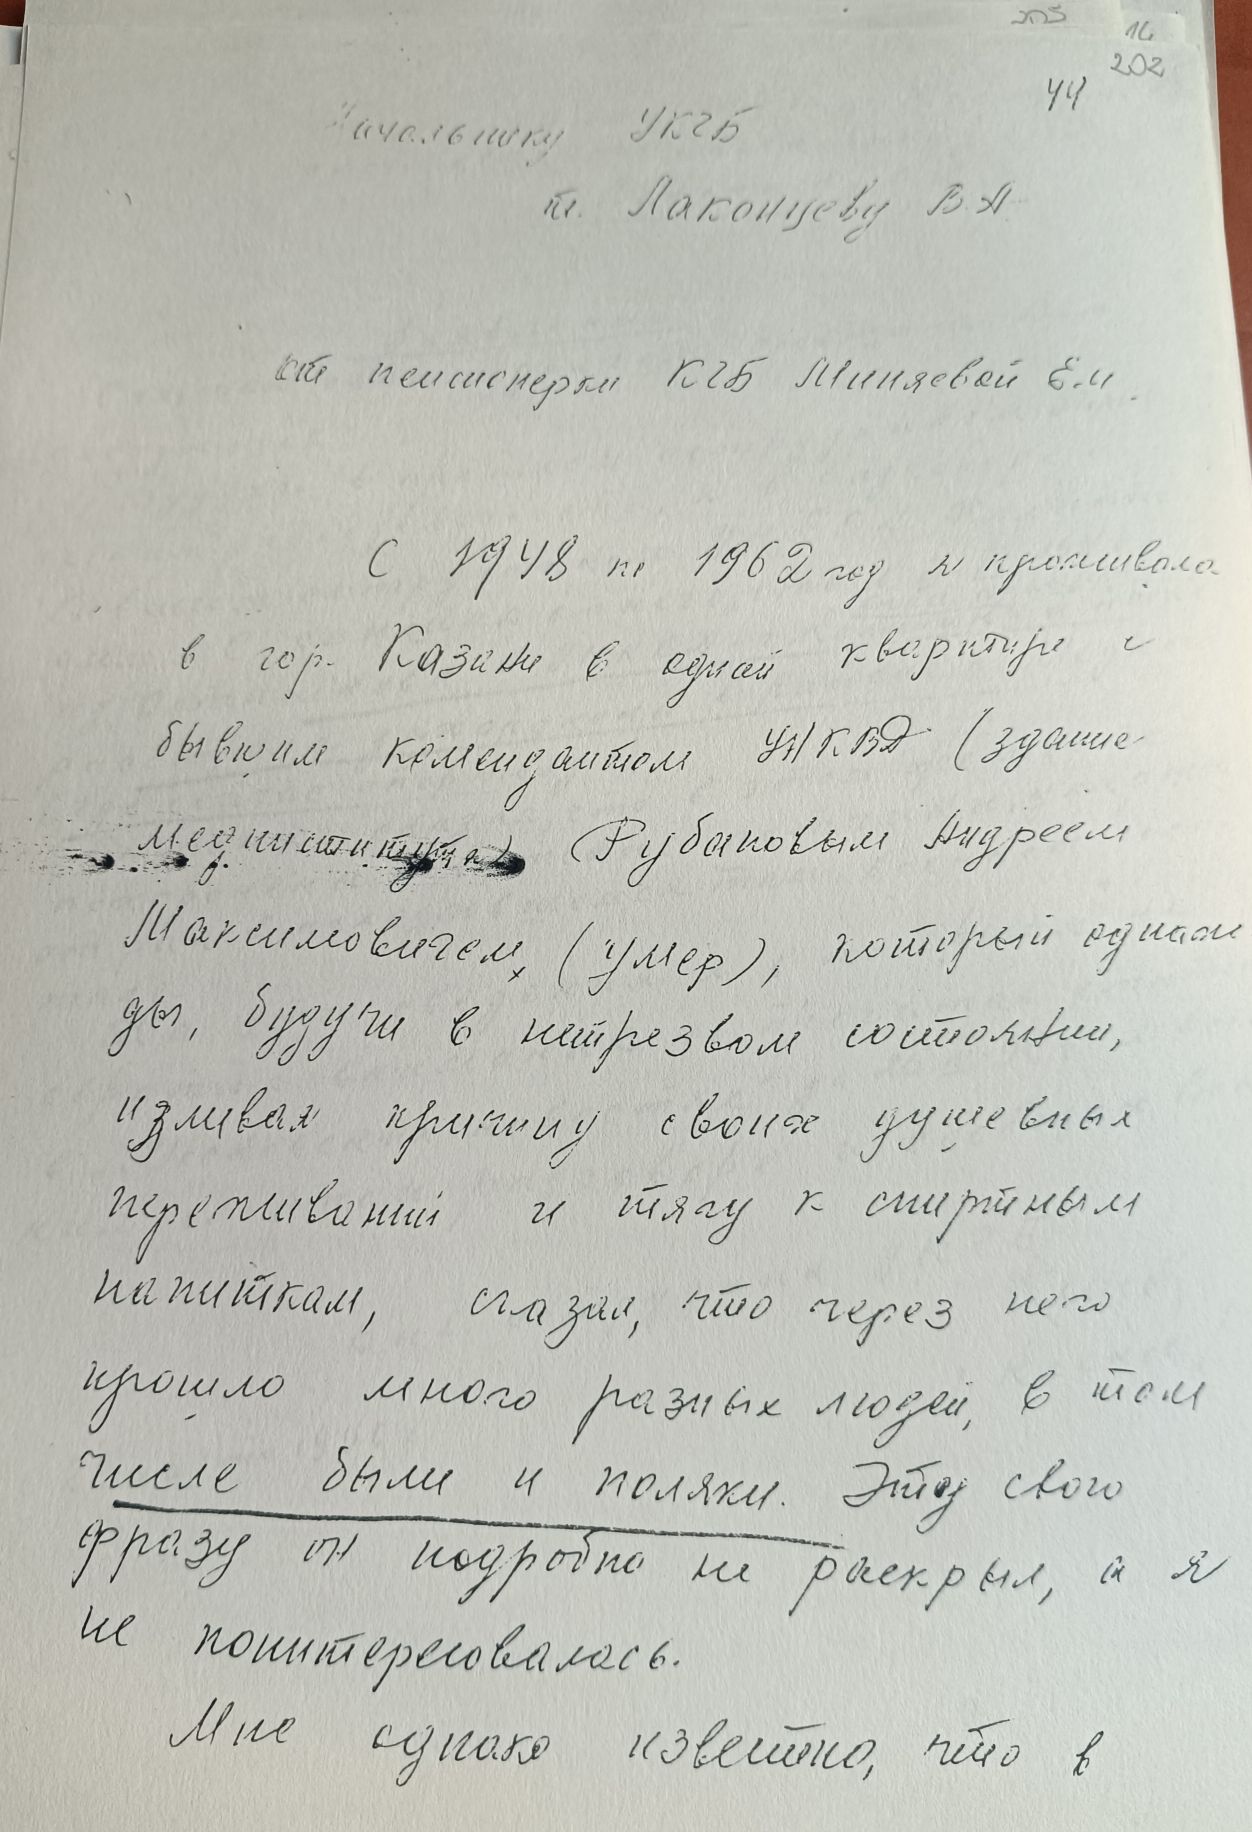 14
202
44
Начальнику УКГБ
т. Лаконцеву В.А.
от пенсионерки КГБ Миняевой Е.И.
С 1948 по 1962 год я проживала
в гор. Казани в одной квартире с
бывшим комендантом УНКВД (здание
мединститута) Рубановым Андреем
Максимовичем, (умер), который однаж
ды, будучи в нетрезвом состоянии,
изливая причину своих душевных
переживаний и тягу к спиртным
напиткам, сказал, что через него
прошло много разных людей, в том
числе были и поляки. Эту свою
фразу он подробно не раскрыл, а я
не поинтересовалась.
Мне однако известно, что в